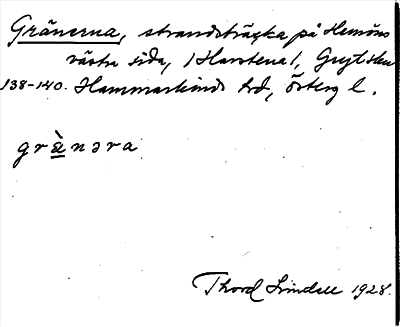 Gränerna, strandsträcka på Hemöns
västra sida, (Harstena), Gryt skn
138-140. Hammarkinds hd, Österg l.
grànəra
Thord Lindell 1928.